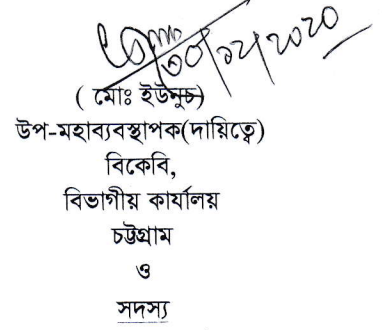 ৩০/১২/২০২০
( মোঃ ইউনুচ)
উপ-মহাব্যবস্থাপক(দায়িত্বে)
বিকেবি,
বিভাগীয় কার্যালয়
চট্টগ্রাম
ও
সদস্য